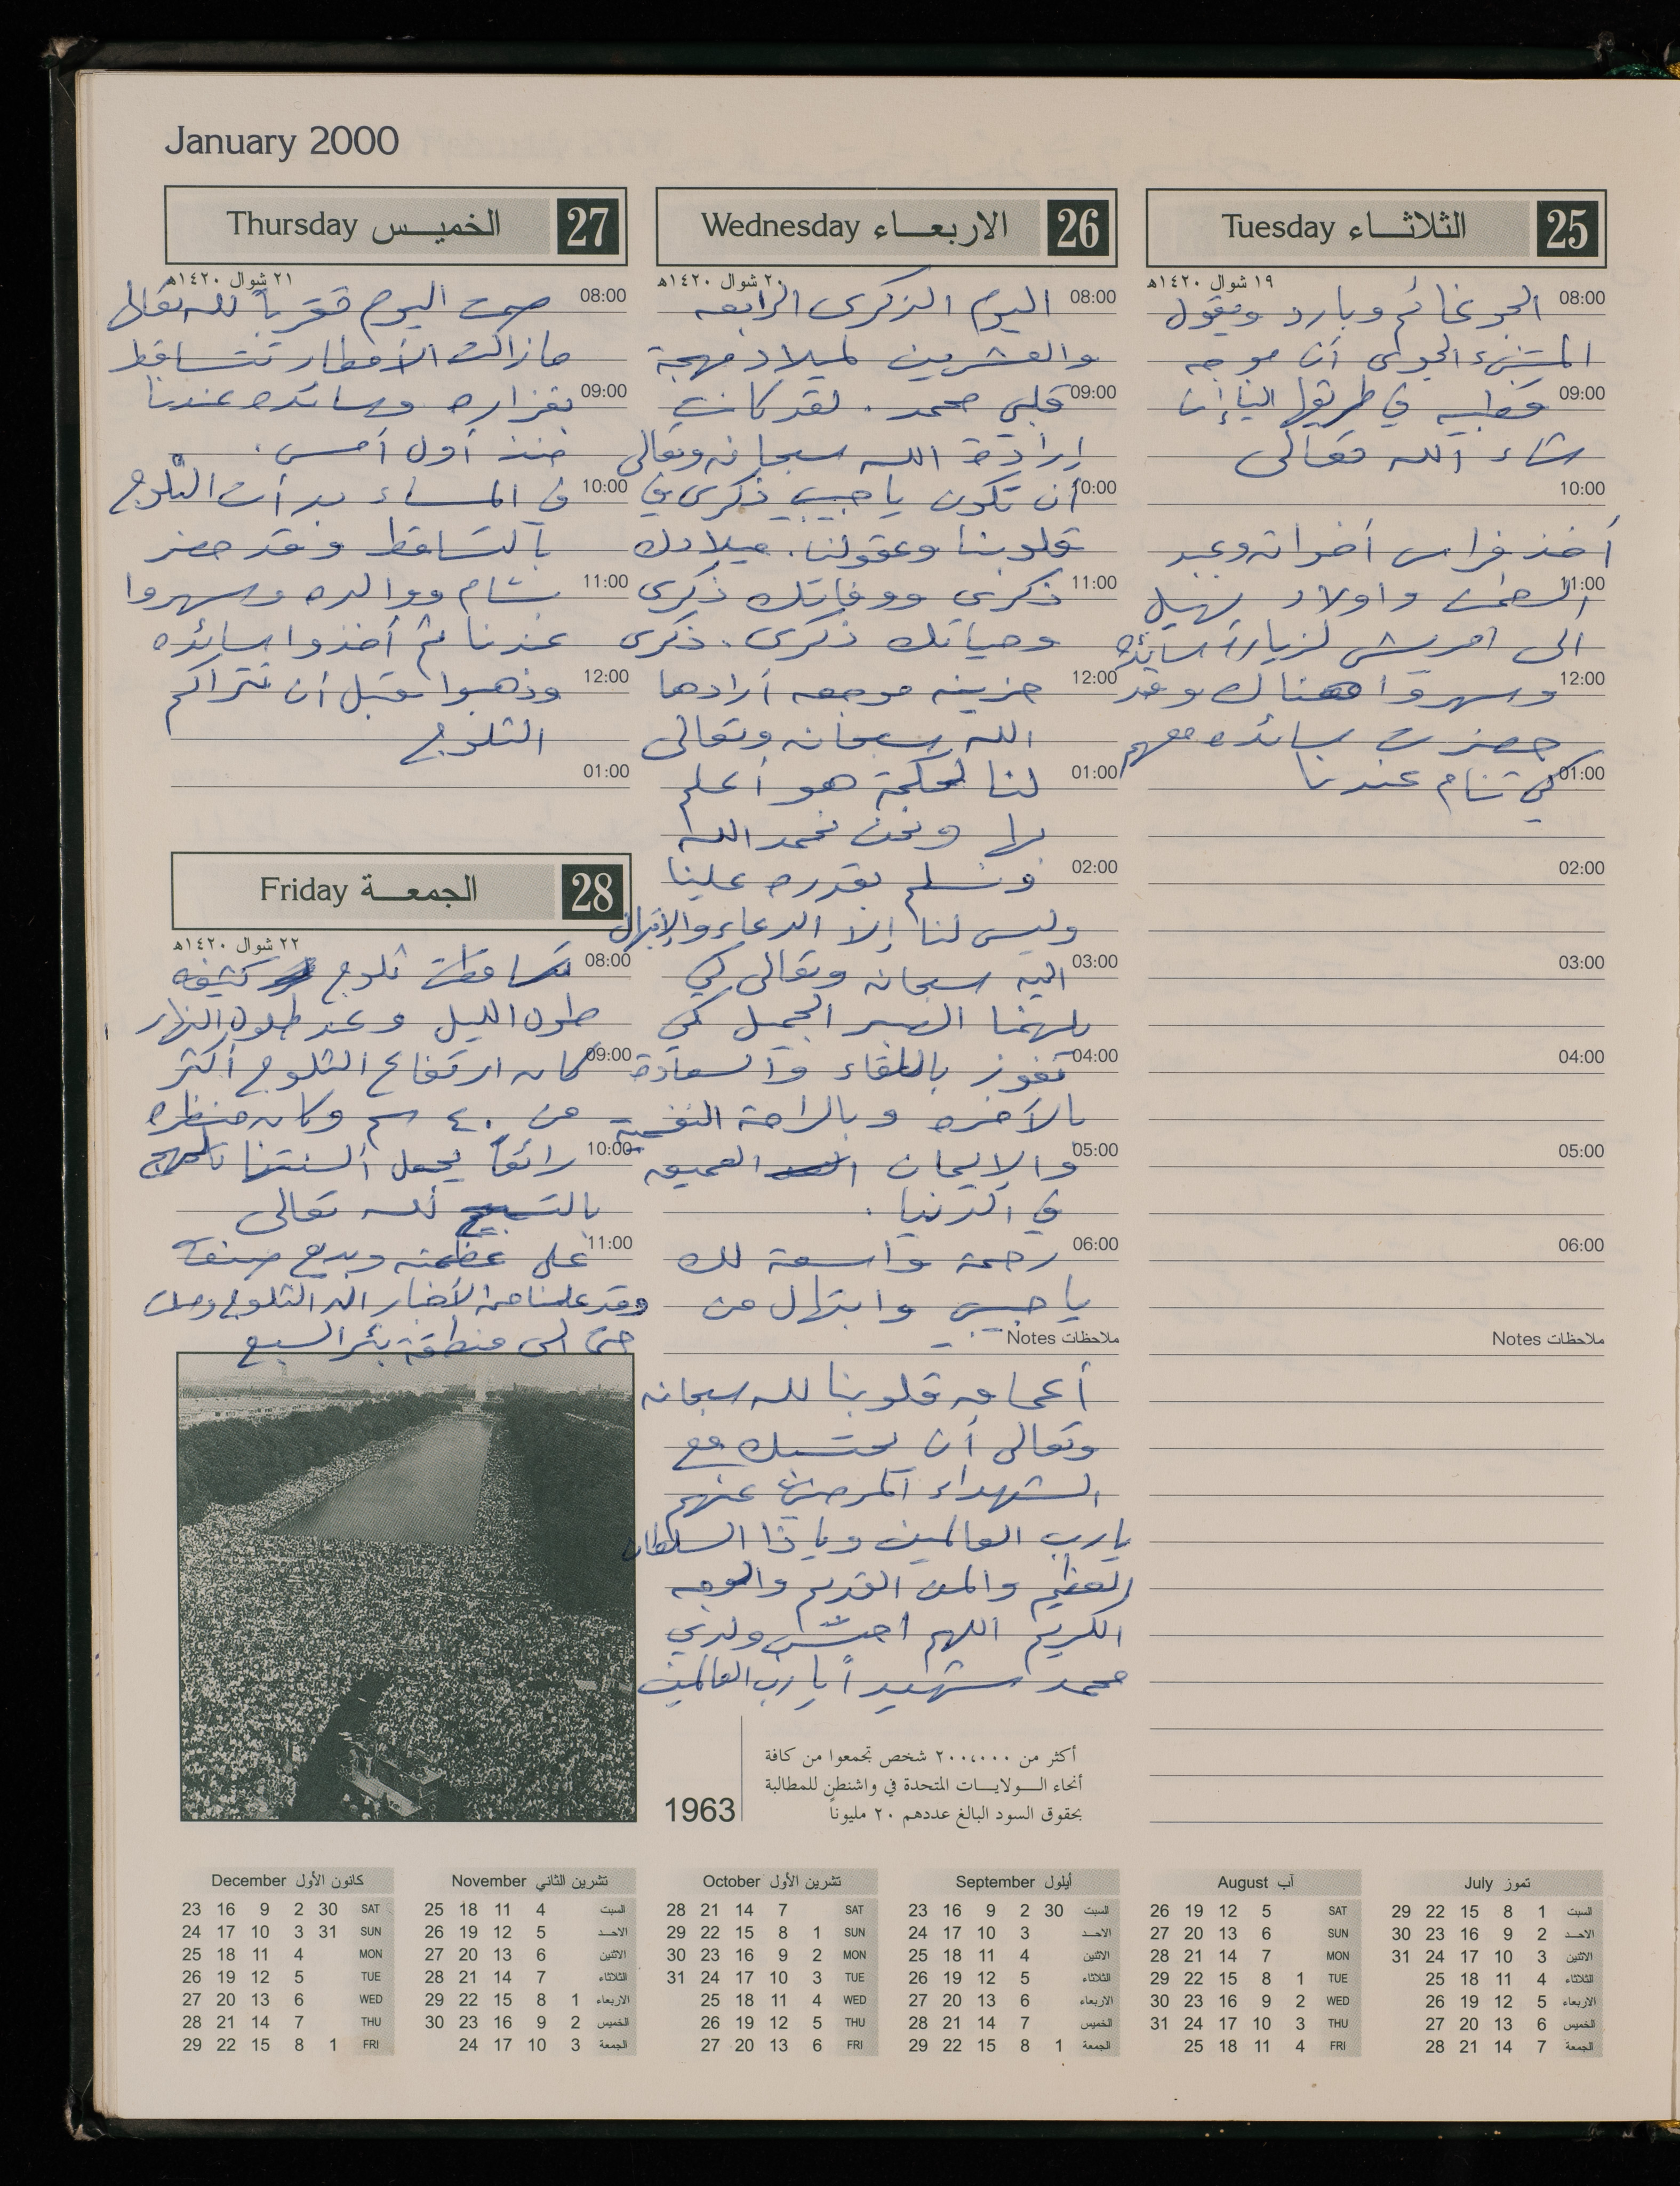 January 2000
25 الثلاثاء Tuesday
١٩ شوال ١٤٢٠هـ
08:00
الجو غائم وبارد ويقول
المتنبىء الجوي أن موجه
09:00
قطبيه في طريقها الينا إن
شاء الله تعالى
10:00
أخذ فراس أخواته وعبد
11:00
الرحمن واولاد نهيل
الى امريش لزيارة سائده
12:00
وسهروا هناك وقد
حضرت سائده معهم
01:00
كي تنام عندنا
02:00
03:00
04:00
05:00
06:00
ملاحظات Notes
26 الاربعاء Wednesday
٢٠ شوال ١٤٢٠هـ
08:00
اليوم الذكرى الرابعه
والعشرين لميلاد مهجة
09:00
قلبي محمد . لقد كانت
إرادة الله سبحانه وتعالى
10:00
أن تكون يا حبيبي ذكرى في
قلوبنا وعقولنا . ميلادك
11:00
ذكرى ووفاتك ذكرى
وحياتك ذكرى . ذكرى
12:00
حزينه موجعه أرادها
الله سبحانه وتعالى
01:00
لنا لحكمة هو أعلم
بها ونحن نحمد الله
02:00
ونسلم بقدره علينا
وليس لنا إلا الدعاء والإبتهال
03:00
اليه سبحانه وتعالى كي
يلهمنا الصبر الجميل كي
04:00
نفوز باللقاء والسعادة
بالآخره وبالراحة النفسية
05:00
والإيمان العميق
في الدنيا .
06:00
رحمة واسعة لك
يا حبيبي وابتهال من
ملاحظات Notes
أعماق قلوبنا لله سبحانه
وتعالى أن يحتسبك مع
الشهداء المرضيّ عنهم
يارب العالمين ويا ذا السلطان
العظيم والمن القديم والوجه
الكريم اللهم احتسب ولدي
محمد شهيداً يا رب العالمين
27 الخميس Thursday
٢١ شوال ١٤٢٠هـ
08:00
صمت اليوم تقرباً لله تعالى
مازالت الأمطار تتساقط
09:00
بغزاره وسائده عندنا
منذ أول أمس .
10:00
في المساء بدأت الثلوج
بالتساقط وقد حضر
11:00
بشام ووالده وسهروا
عندنا ثم أخذوا سائده
12:00
وذهبوا قبل أن تتراكم
الثلوج
01:00
28 الجمعة Friday
٢٢ شوال ١٤٢٠هـ
08:00
تساقطت ثلوج كثيفه
طول الليل وعند طلوع النهار
09:00
كان ارتفاع الثلوج أكثر
من ٤٠ سم وكان منظره
10:00
رائعاً يجعل ألسنتنا تلهج
بالتسبيح لله تعالى
11:00
على عظمته وبديع صنعه
وقد علمنا من الأخبار ان الثلوج وصلت
حتى الى منطقة بئر السبع
1963
أكثر من ٢٠٠،٠٠٠ شخص تجمعوا من كافة
أنحاء الـولايـات المتحدة في واشنطن للمطالبة
بحقوق السود البالغ عددهم ٢٠ مليوناً
تموز July
السبت 1 8 15 22 29
الاحد 2 9 16 23 30
الاثنين 3 10 17 24 31
الثلاثاء 4 11 18 25
الاربعاء 5 12 19 26
الخميس 6 13 20 27
الجمعة 7 14 21 28
آب August
SAT 5 12 19 26
SUN 6 13 20 27
MON 7 14 21 28
TUE 1 8 15 22 29
WED 2 9 16 23 30
THU 3 10 17 24 31
FRI 4 11 18 25
أيلول September
السبت 30 2 9 16 23
الاحد 3 10 17 24
الاثنين 4 11 18 25
الثلاثاء 5 12 19 26
الاربعاء 6 13 20 27
الخميس 7 14 21 28
الجمعة 1 8 15 22 29
تشرين الأول October
SAT 7 14 21 28
SUN 1 8 15 22 29
MON 2 9 16 23 30
TUE 3 10 17 24 31
WED 4 11 18 25
THU 5 12 19 26
FRI 6 13 20 27
تشرين الثاني November
السبت 4 11 18 25
الاحد 5 12 19 26
الاثنين 6 13 20 27
الثلاثاء 7 14 21 28
الاربعاء 1 8 15 22 29
الخميس 2 9 16 23 30
الجمعة 3 10 17 24
كانون الأول December
SAT 30 2 9 16 23
SUN 31 3 10 17 24
MON 4 11 18 25
TUE 5 12 19 26
WED 6 13 20 27
THU 7 14 21 28
FRI 1 8 15 22 29